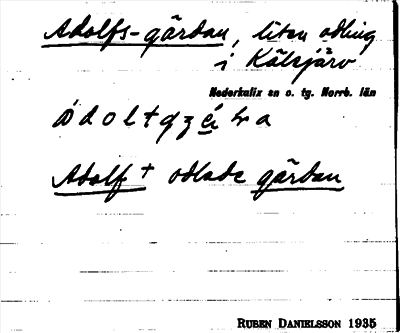 Adolfs-gärdan, liten odling
i Kälsjärv
Nederkalix sn o. tg. Norrb. län
Adolf + odlade gärdan
RUBEN DANIELSSON 1935